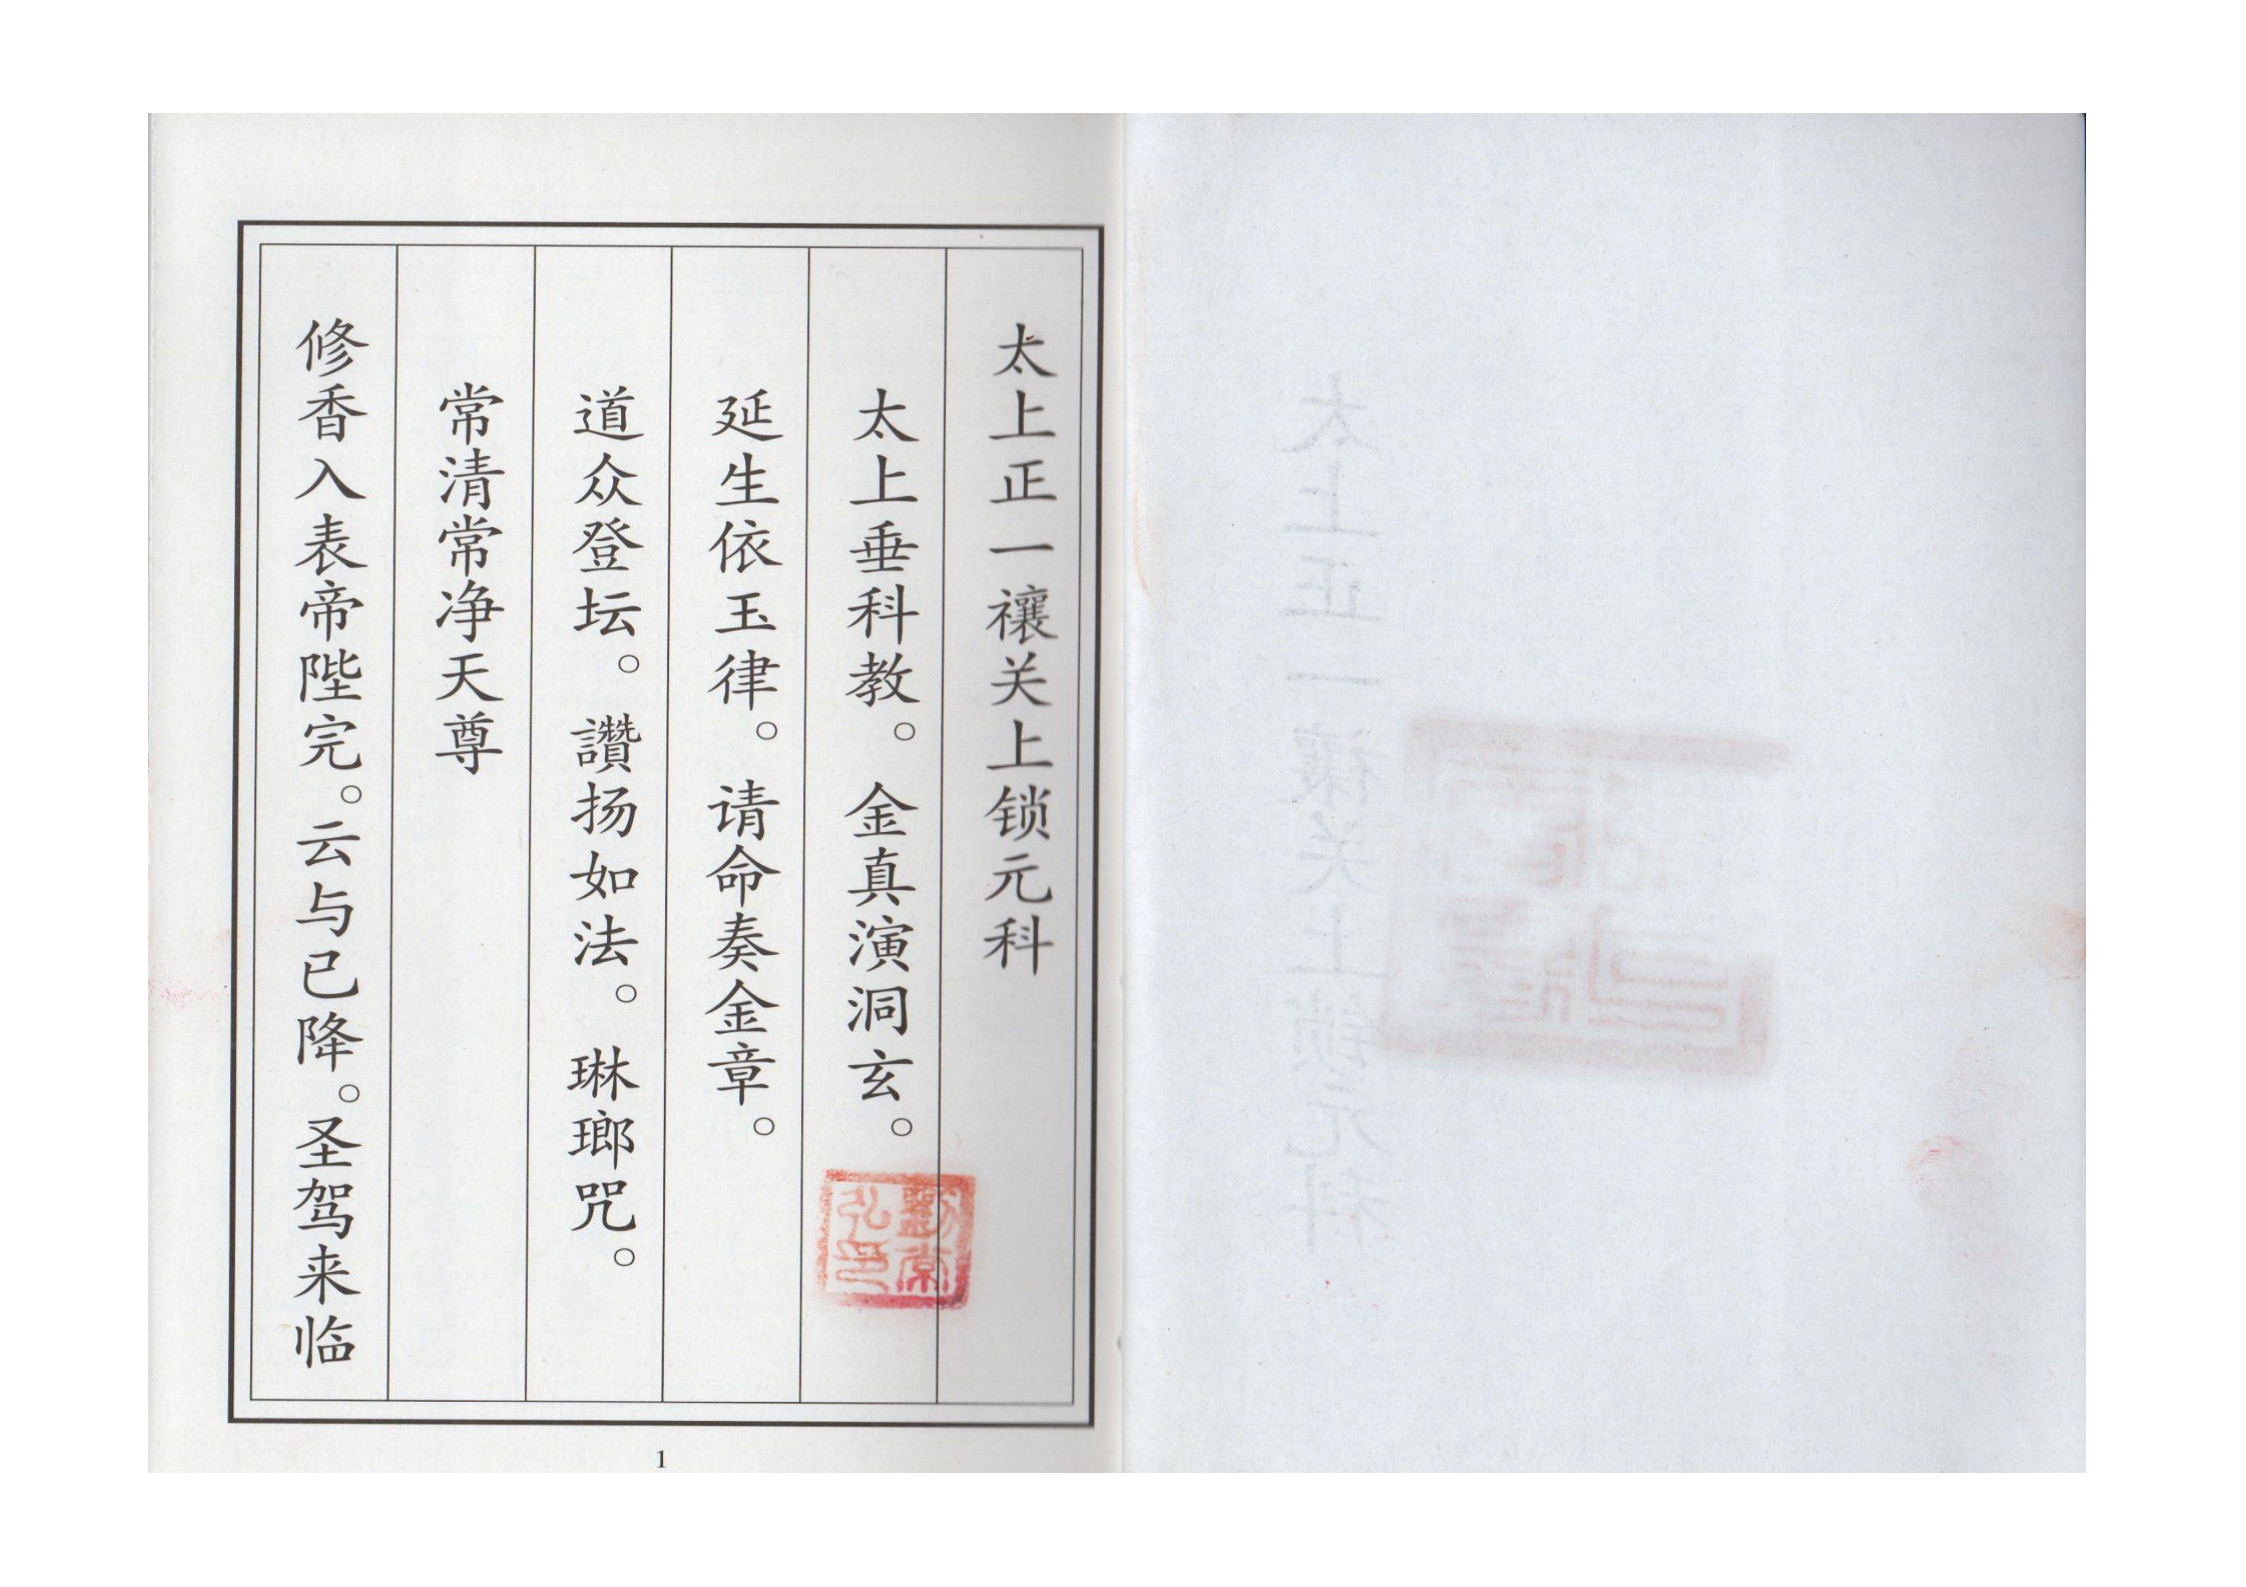 太上正一禳关上锁元科
太上垂科教。金真演洞玄。
延生依玉律。请命奏金章。
道众登坛。讚扬如法。琳瑯咒。
常清常净天尊
修香入表帝陛完。云与已降。圣驾来临
1
太上正一禳关上锁元科